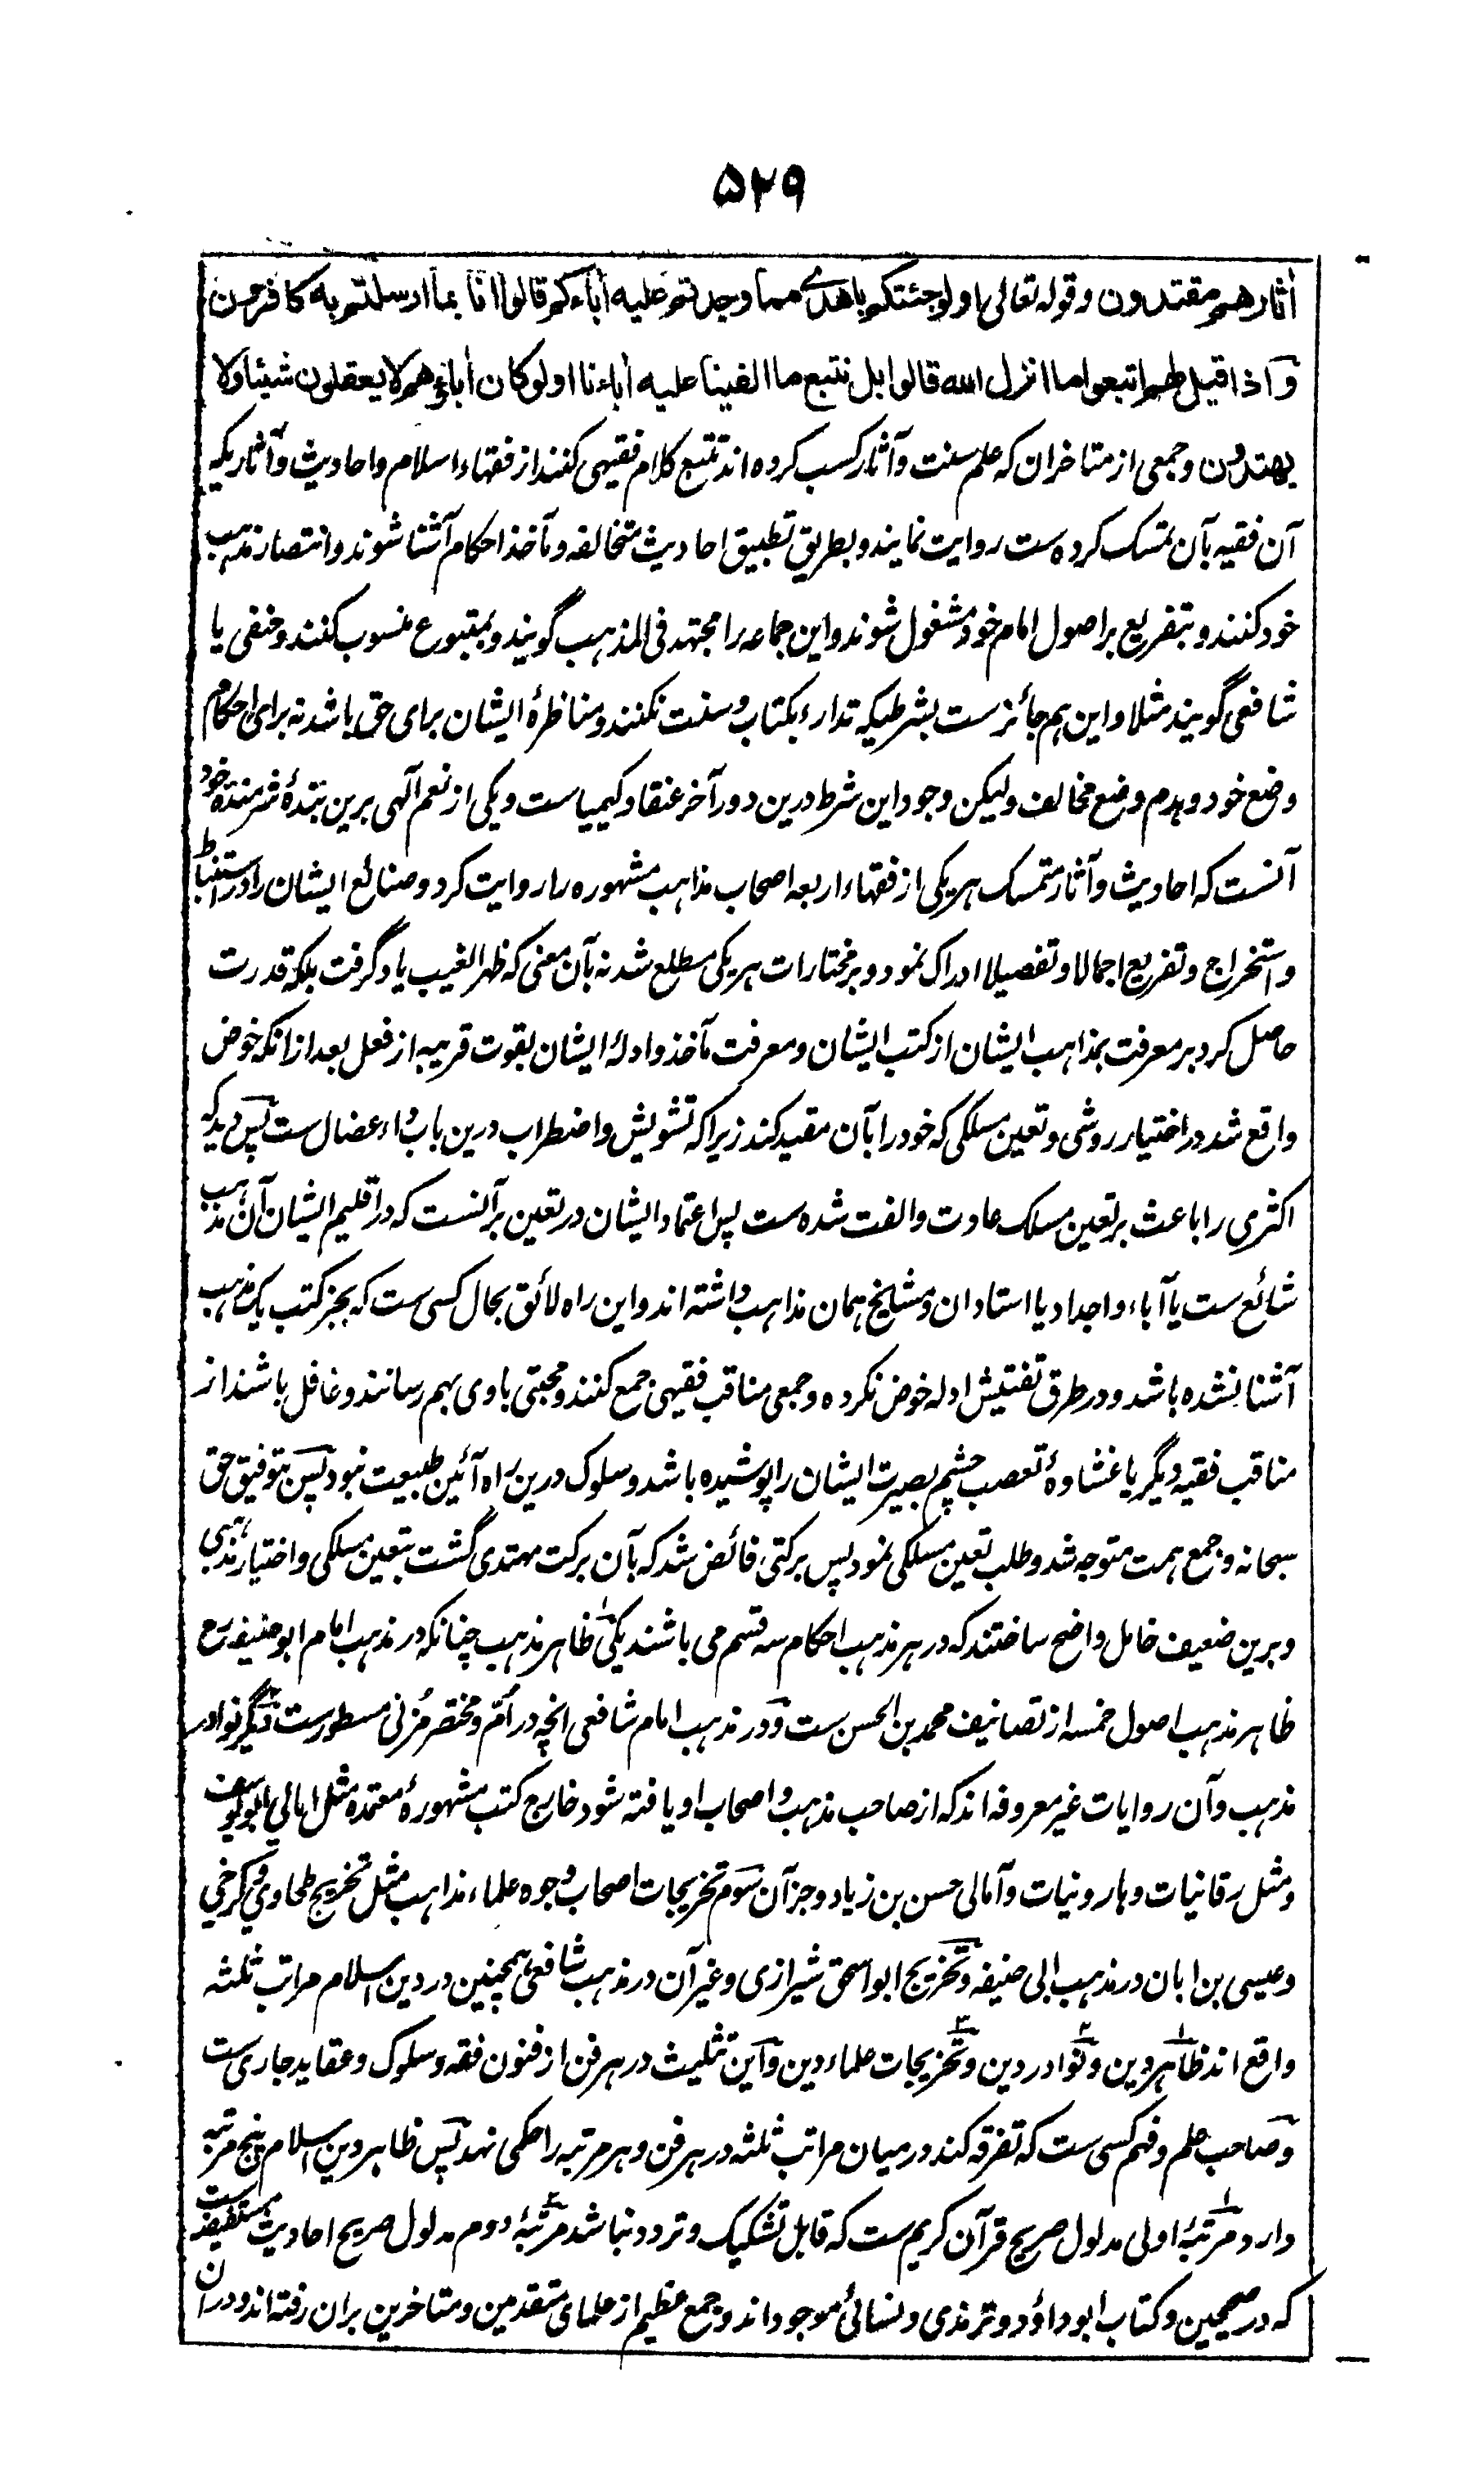 ۵۲۹
أثارهم مقتدون وقوله تعالی اولو جئتكم باهدى مما وجدتم عليه أباءكم قالوا انا بما ارسلتم به كافرون
واذا قيل لهم اتبعوا ما انزل الله قالوا بل نتبع ما الفينا عليه أباءنا اولو كان أباؤهم لا يعقلون شيئا ولا
يهتدون وجمعی از متاخران که علم سنت وآثار کسب کرده اند تتبع کلام فقیهی کنند از فقهاء اسلام واحادیث وآثاریکه
آن فقیه بآن تمسک کرده ست روایت نمایند و بطریق تطبیق احادیث متخالفه ومآخذ احکام آشنا شوند وانتصار مذهب
خود کنند وبتفریع بر اصول امام خود مشغول شوند واین جماعه را مجتهد فی المذهب گویند وبمتبوع منسوب کنند وحنفی یا
شافعی گویند مثلا واین هم جائزست بشرطیکه تدارء بکتاب وسنت نکنند ومناظرهٔ ایشان برای حق باشد نه برای احکام
وضع خود وهدم وضع مخالف ولیکن وجود این شرط درین دور آخر عنقا وکیمیاست ویکی از نعم آلهی برین بندهٔ شرمنده خود
آنست که احادیث وآثار متمسک هریکی از فقهاء اربعه اصحاب مذاهب مشهوره را روایت کرد وصنائع ایشان را در استنباط
واستخراج وتفریع اجمالا وتفصیلا ادراک نمود وبر مختارات هریکی مطلع شد نه بآن معنی که ظهر الغیب یاد گرفت بلکه قدرت
حاصل کرد بر معرفت بمذاهب ایشان از کتب ایشان ومعرفت مآخذ وادلهٔ ایشان بقوت قریبه از فعل بعد ازانکه خوض
واقع شد در اختیار روشی وتعین مسلکی که خود را بآن مقید کند زیرا که تشویش واضطراب درین باب داء عضال ست پس دید که
اکثری را باعث بر تعین مسلک عادت والفت شده ست پس اعتماد ایشان در تعین برآنست که در اقلیم ایشان آن مذهب
شائع ست یا آباء واجداد یا استادان ومشایخ همان مذاهب داشته اند واین راه لائق بحال کسی ست که بجز کتب یک مذهب
آشنا نشده باشد ودر طرق تفتیش ادله خوض نکرده وجمعی مناقب فقیهی جمع کنند ومحبتی باوی بهم رسانند وغافل باشند از
مناقب فقیه دیگر یا غشاوهٔ تعصب چشم بصیرت ایشان را پوشیده باشد وسلوک درین راه آئین طبیعت نبود پس بتوفیق حق
سبحانه وجمع همت متوجه شد وطلب تعین مسلکی نمود پس برکتی فائض شد که بآن برکت مهتدی گشت بتعین مسلکی واختیار مذهبی
وبرین ضعیف خامل واضح ساختند که در هر مذهب احکام سه قسم می باشند یکی ظاهر مذهب چنانکه در مذهب امام ابوحنیفه رح
ظاهر مذهب اصول خمسه از تصانیف محمد بن الحسن ست ودر مذهب امام شافعی انچه در اُمّ ومختصر مُزنی مسطورست دیگر نوادر
مذهب وآن روایات غیر معروفه اند که از صاحب مذهب واصحاب او یافته شود خارج کتب مشهورهٔ معتمده مثل امالی ابو یوسف
ومثل رقانیات وهارونیات وآمالی حسن بن زیاد وجز آن سوم تخریجات اصحاب وجوه علماء مذاهب مثل تخریج طحاوی وکرخی
وعیسی بن ابان در مذهب ابی حنیفه وتخریج ابواسحق شیرازی وغیر آن در مذهب شافعی همچنین در دین اسلام مراتب ثلثه
واقع اند ظاهر دین ونوادر دین وتخریجات علماء دین واین تثلیث در هر فن از فنون فقه وسلوک وعقاید جاری ست
وصاحب علم وفهم کسی ست که تفرقه کند درمیان مراتب ثلثه در هر فن وهر مرتبه را حکمی نهد پس ظاهر دین اسلام پنج مرتبه
دارد مرتبهٔ اولی مدلول صریح قرآن کریم ست که قابل تشکیک وتردد نباشد مرتبهٔ دوم مدلول صریح احادیث مستفیضه ست
که در صحیحین وکتاب ابوداؤد وترمذی ونسائی موجود اند وجمع عظیم از علمای متقدمین ومتاخرین بران رفته اند ودران